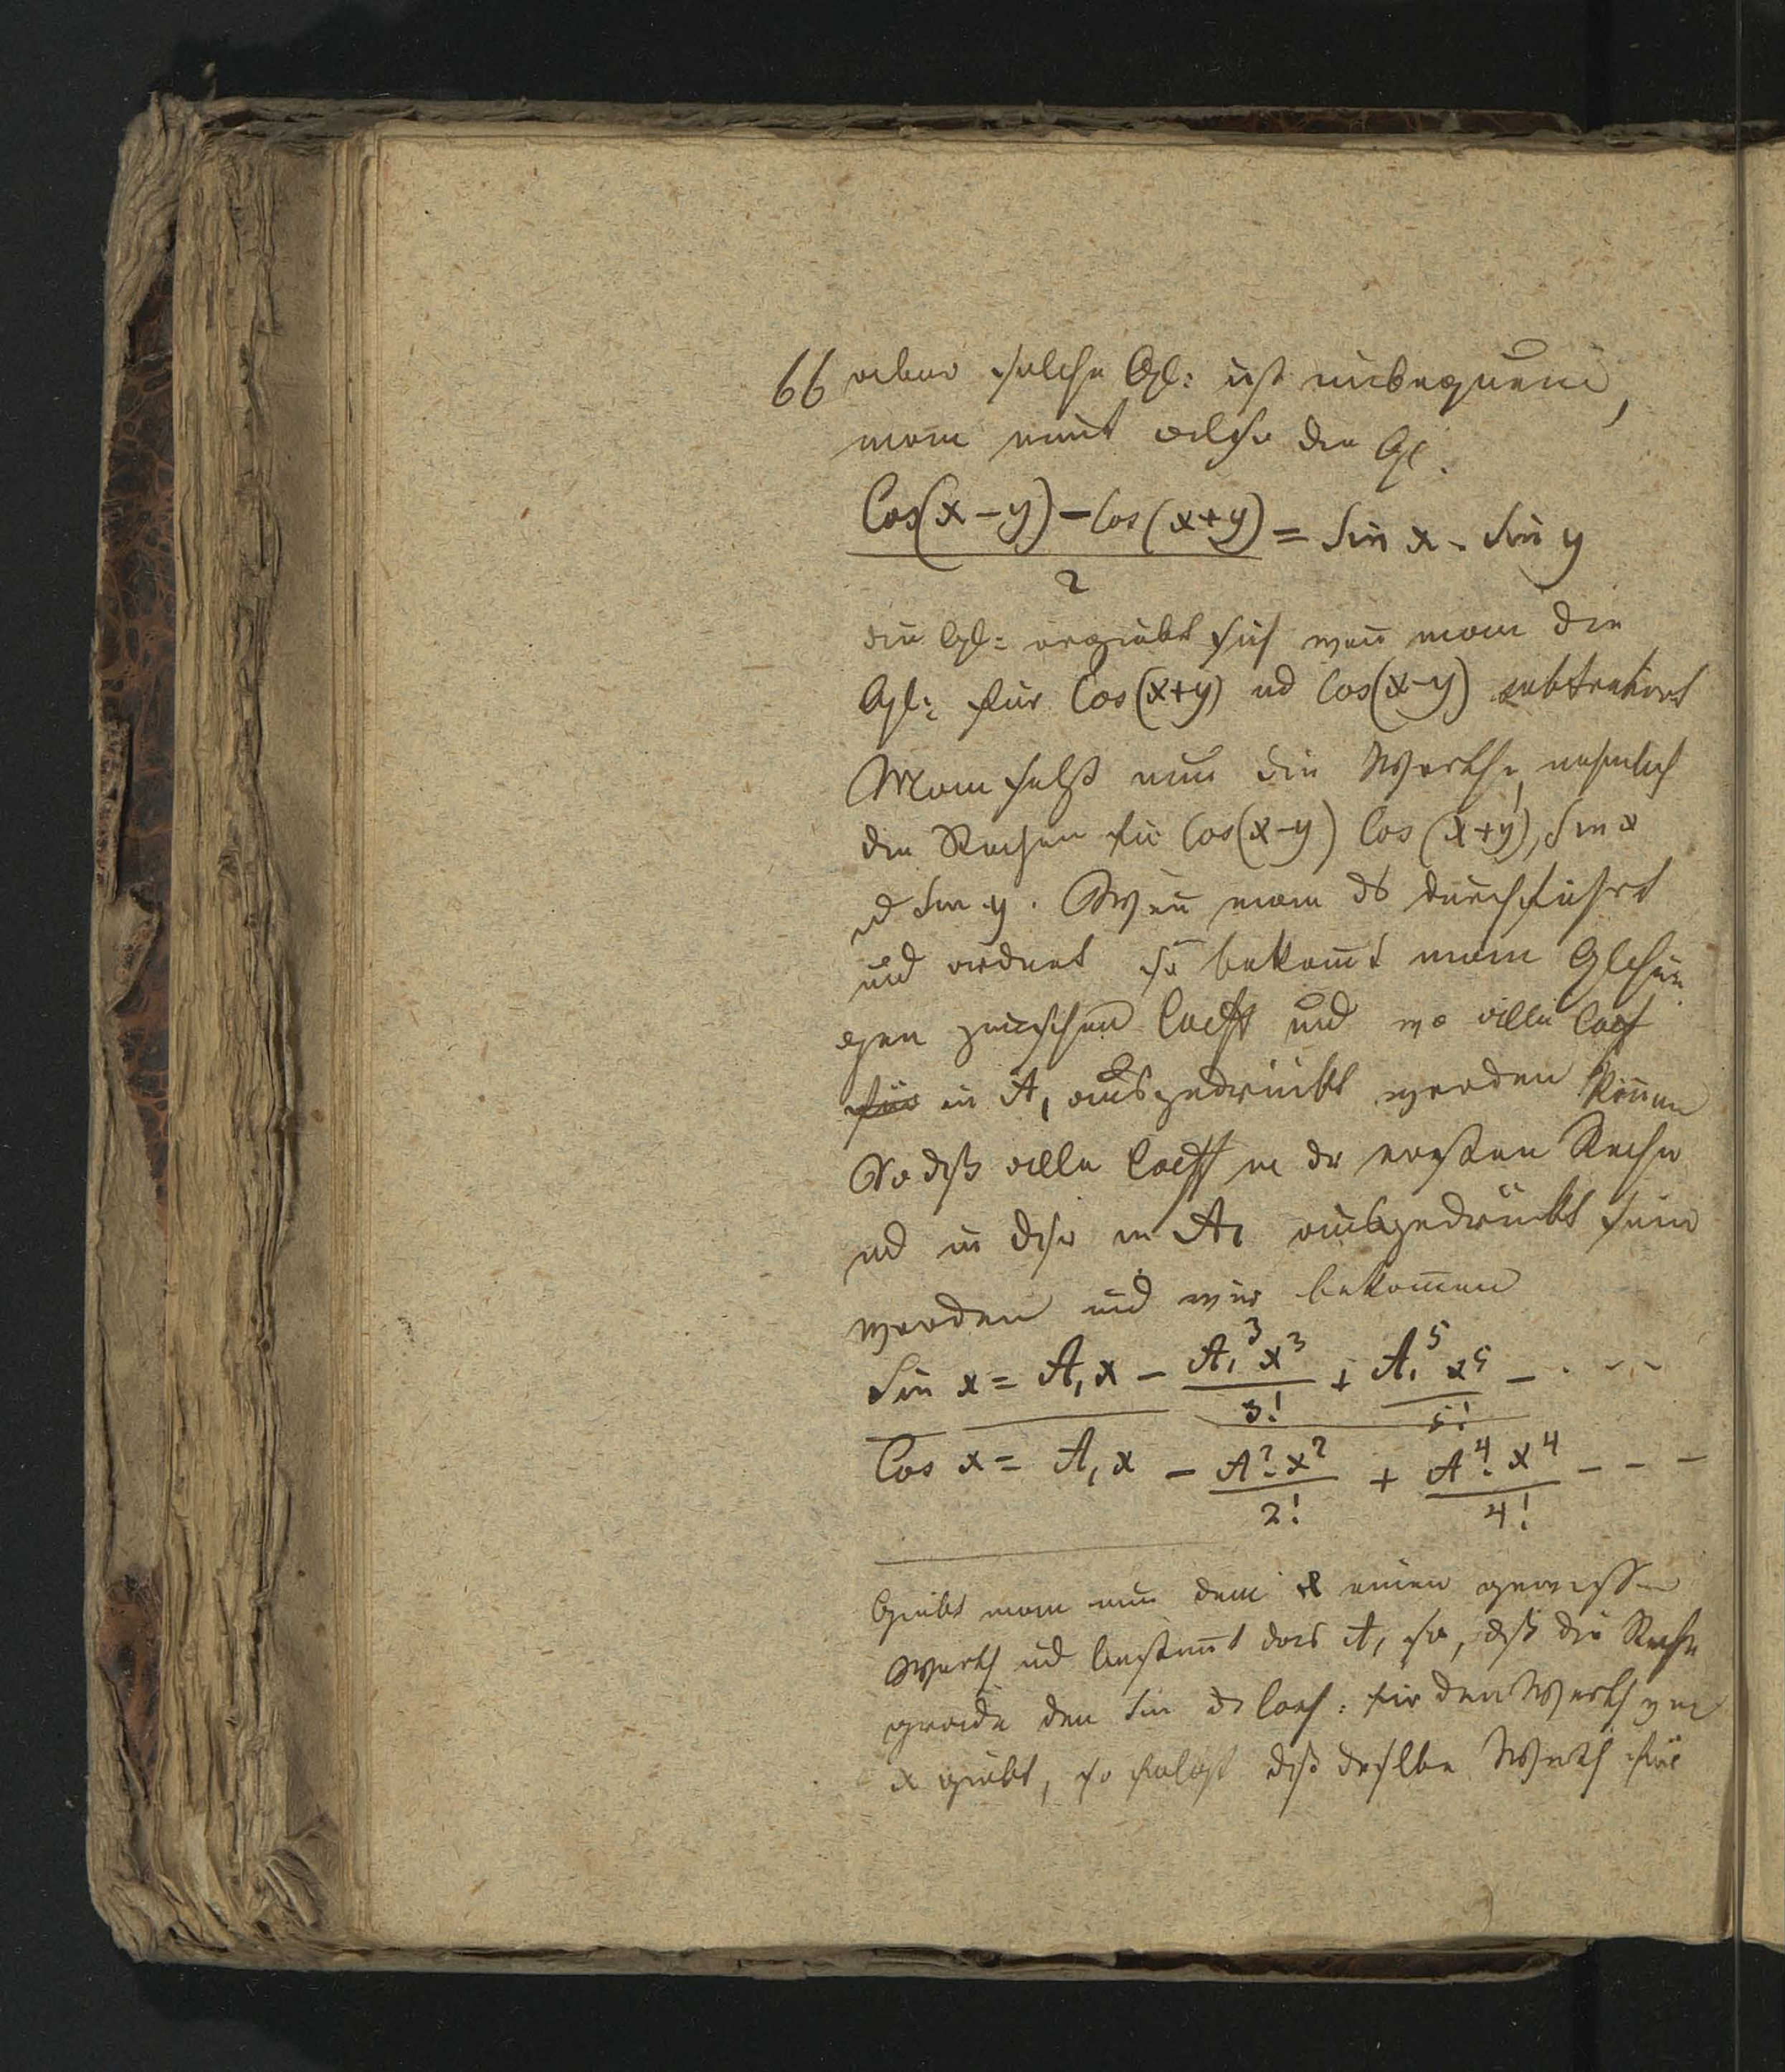 66 aber solche Gl: ist unbequem,
man nimt also die Gl.
Cos(x-y) - Cos(x+y) / 2 = Sin x. Sin y
die Gl: ergiebt sich wen̄ man die
Gl: für Cos(x+y) ud Cos(x-y) subtrahirt
Man setzt nun die Werthe, nehmlich
die Reihen für Cos(x-y) Cos(x+y), Sin x
ud Sin y. Wen̄ man ds durchführt
und ordnet so bekom̄t man Gleichun
gen zwischen Coeff und wo alle Coef
für in A₁ ausgedrückt werden kön̄en
So dß alle Coeff in der ersten Reihe
ud in dser in A₁ ausgedrückt sein
werden und wir bekom̄en
Sin x = A₁x - A₁³x³/3! + A₁⁵x⁵/5! - . - -
Cos x = A₁x - A².x²/2! + A⁴.x⁴/4! - - -
Giebt man nun dem x einen gewissen
Werth ud bestim̄t das A₁ so, dß die Reihe
grade den Sin ds : für den Werth von
x giebt, so folgt dß derselbe Werth für